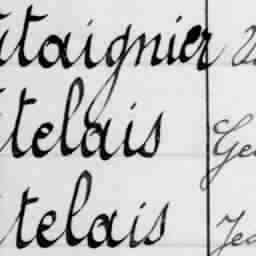 taignier
telais Ge
telais Jea